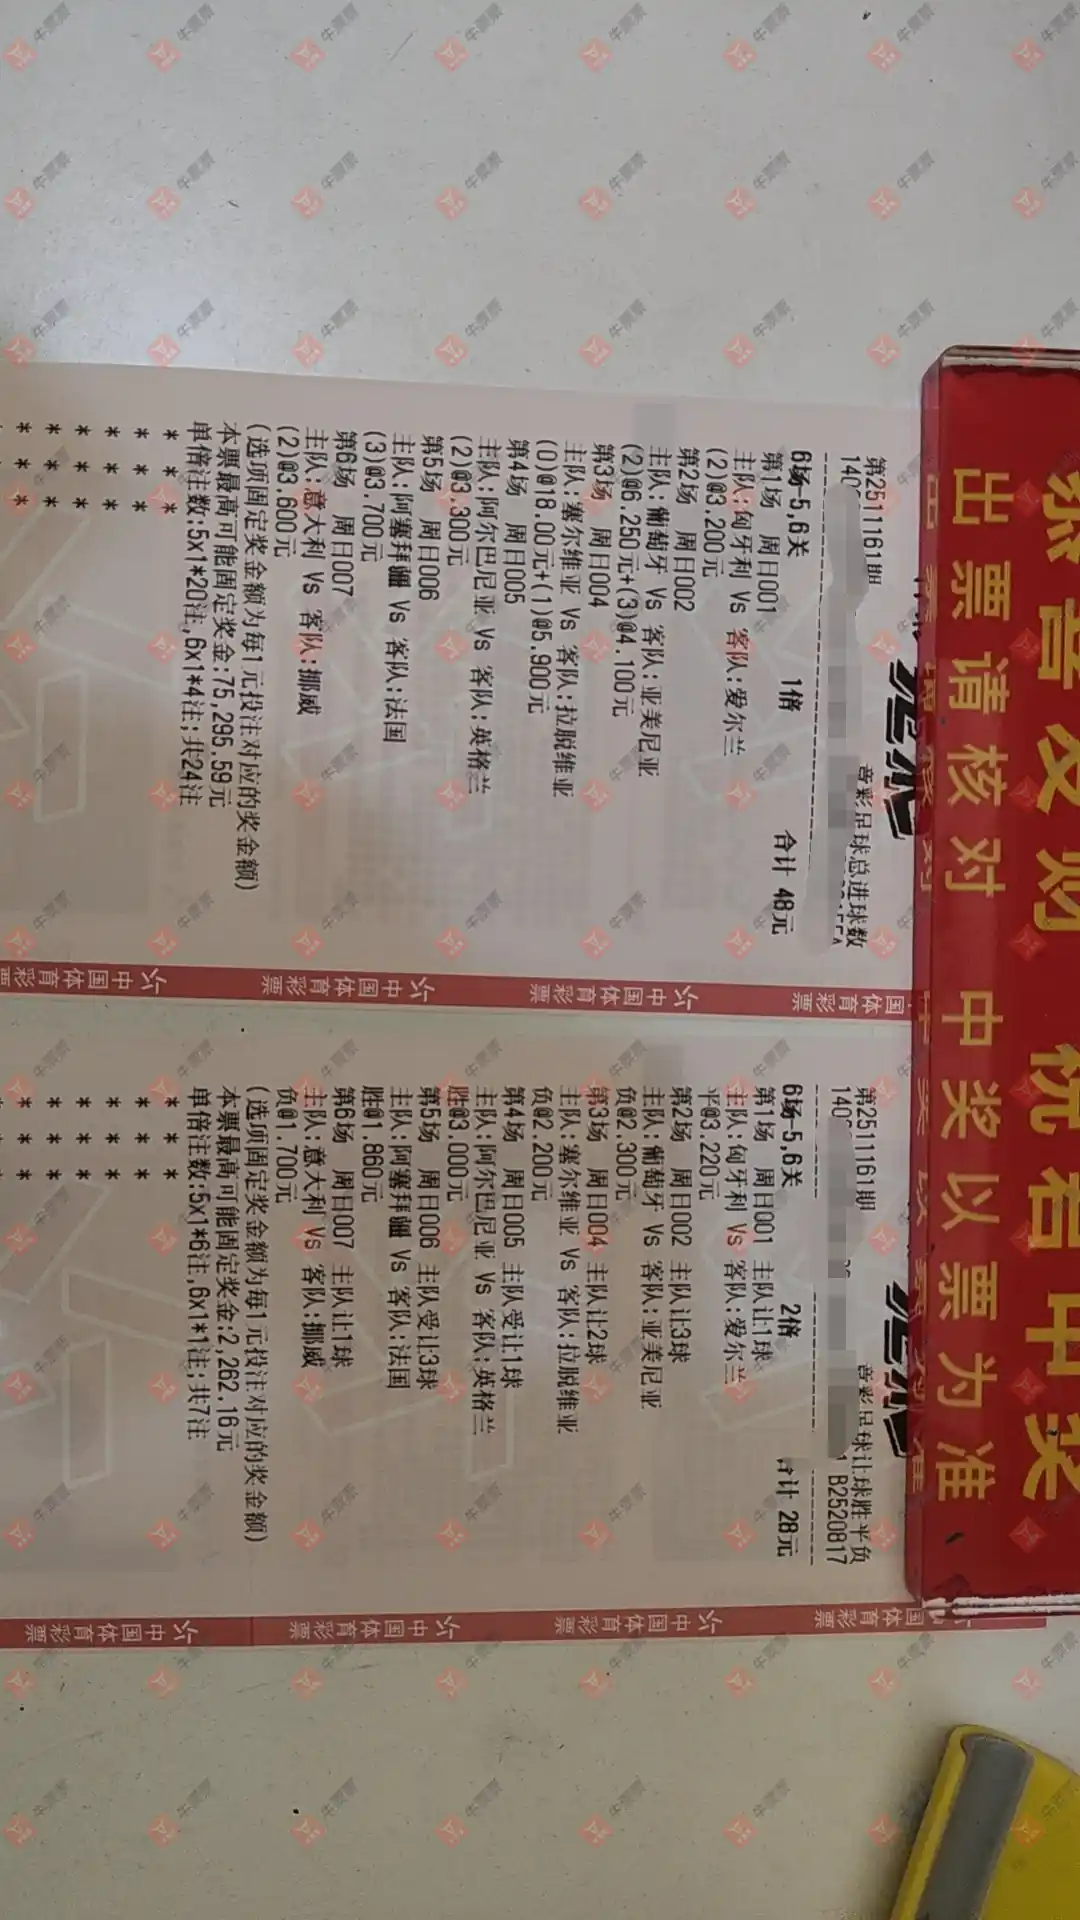 恭喜发财 祝君中奖
出票请核对 中奖以票为准
第25111161期
竞彩足球总进球数
6场-5,6关 1倍 合计 48元
第1场 周日001
主队:匈牙利 Vs 客队:爱尔兰
(2)@3.200元
第2场 周日002
主队:葡萄牙 Vs 客队:亚美尼亚
(2)@6.250元+(3)@4.100元
第3场 周日004
主队:塞尔维亚 Vs 客队:拉脱维亚
(0)@18.00元+(1)@5.900元
第4场 周日005
主队:阿尔巴尼亚 Vs 客队:英格兰
(2)@3.300元
第5场 周日006
主队:阿塞拜疆 Vs 客队:法国
(3)@3.700元
第6场 周日007
主队:意大利 Vs 客队:挪威
(2)@3.600元
(选项固定奖金额为每1元投注对应的奖金额)
本票最高可能固定奖金:75,295.59元
单倍注数:5x1*20注,6x1*4注;共24注
* * *
* * *
* * *
* * *
* * *
* * *
中国体育彩票 中国体育彩票 中国体育彩票 国体育彩票
第25111161期
竞彩足球让球胜平负
B2520817
6场-5,6关 2倍 合计 28元
第1场 周日001 主队让1球
主队:匈牙利 Vs 客队:爱尔兰
平@3.220元
第2场 周日002 主队让3球
主队:葡萄牙 Vs 客队:亚美尼亚
负@2.300元
第3场 周日004 主队让2球
主队:塞尔维亚 Vs 客队:拉脱维亚
负@2.200元
第4场 周日005 主队受让1球
主队:阿尔巴尼亚 Vs 客队:英格兰
胜@3.000元
第5场 周日006 主队受让3球
主队:阿塞拜疆 Vs 客队:法国
胜@1.860元
第6场 周日007 主队让1球
主队:意大利 Vs 客队:挪威
负@1.700元
(选项固定奖金额为每1元投注对应的奖金额)
本票最高可能固定奖金:2,262.16元
单倍注数:5x1*6注,6x1*1注;共7注
* * *
* * *
* * *
* * *
* * *
中国体育彩票 中国体育彩票 中国体育彩票 国体育彩票
牛票票